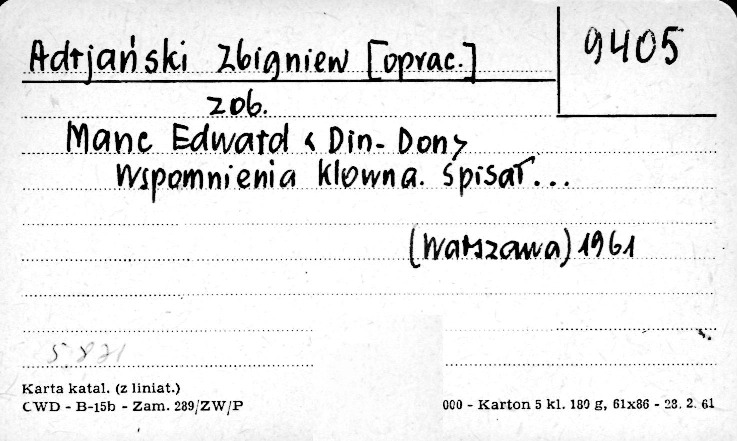 Adrjański Zbigniew [oprac.]
9405
zob.
Manc Edward < Din-Don>
Wspomnienia klowna. Spisał...
(Warszawa) 1961
5.871
Karta katal. (z liniat.)
CWD - B-15b - Zam. 289/ZW/P
000 - Karton 5 kl. 180 g, 61x86 - 23. 2. 61